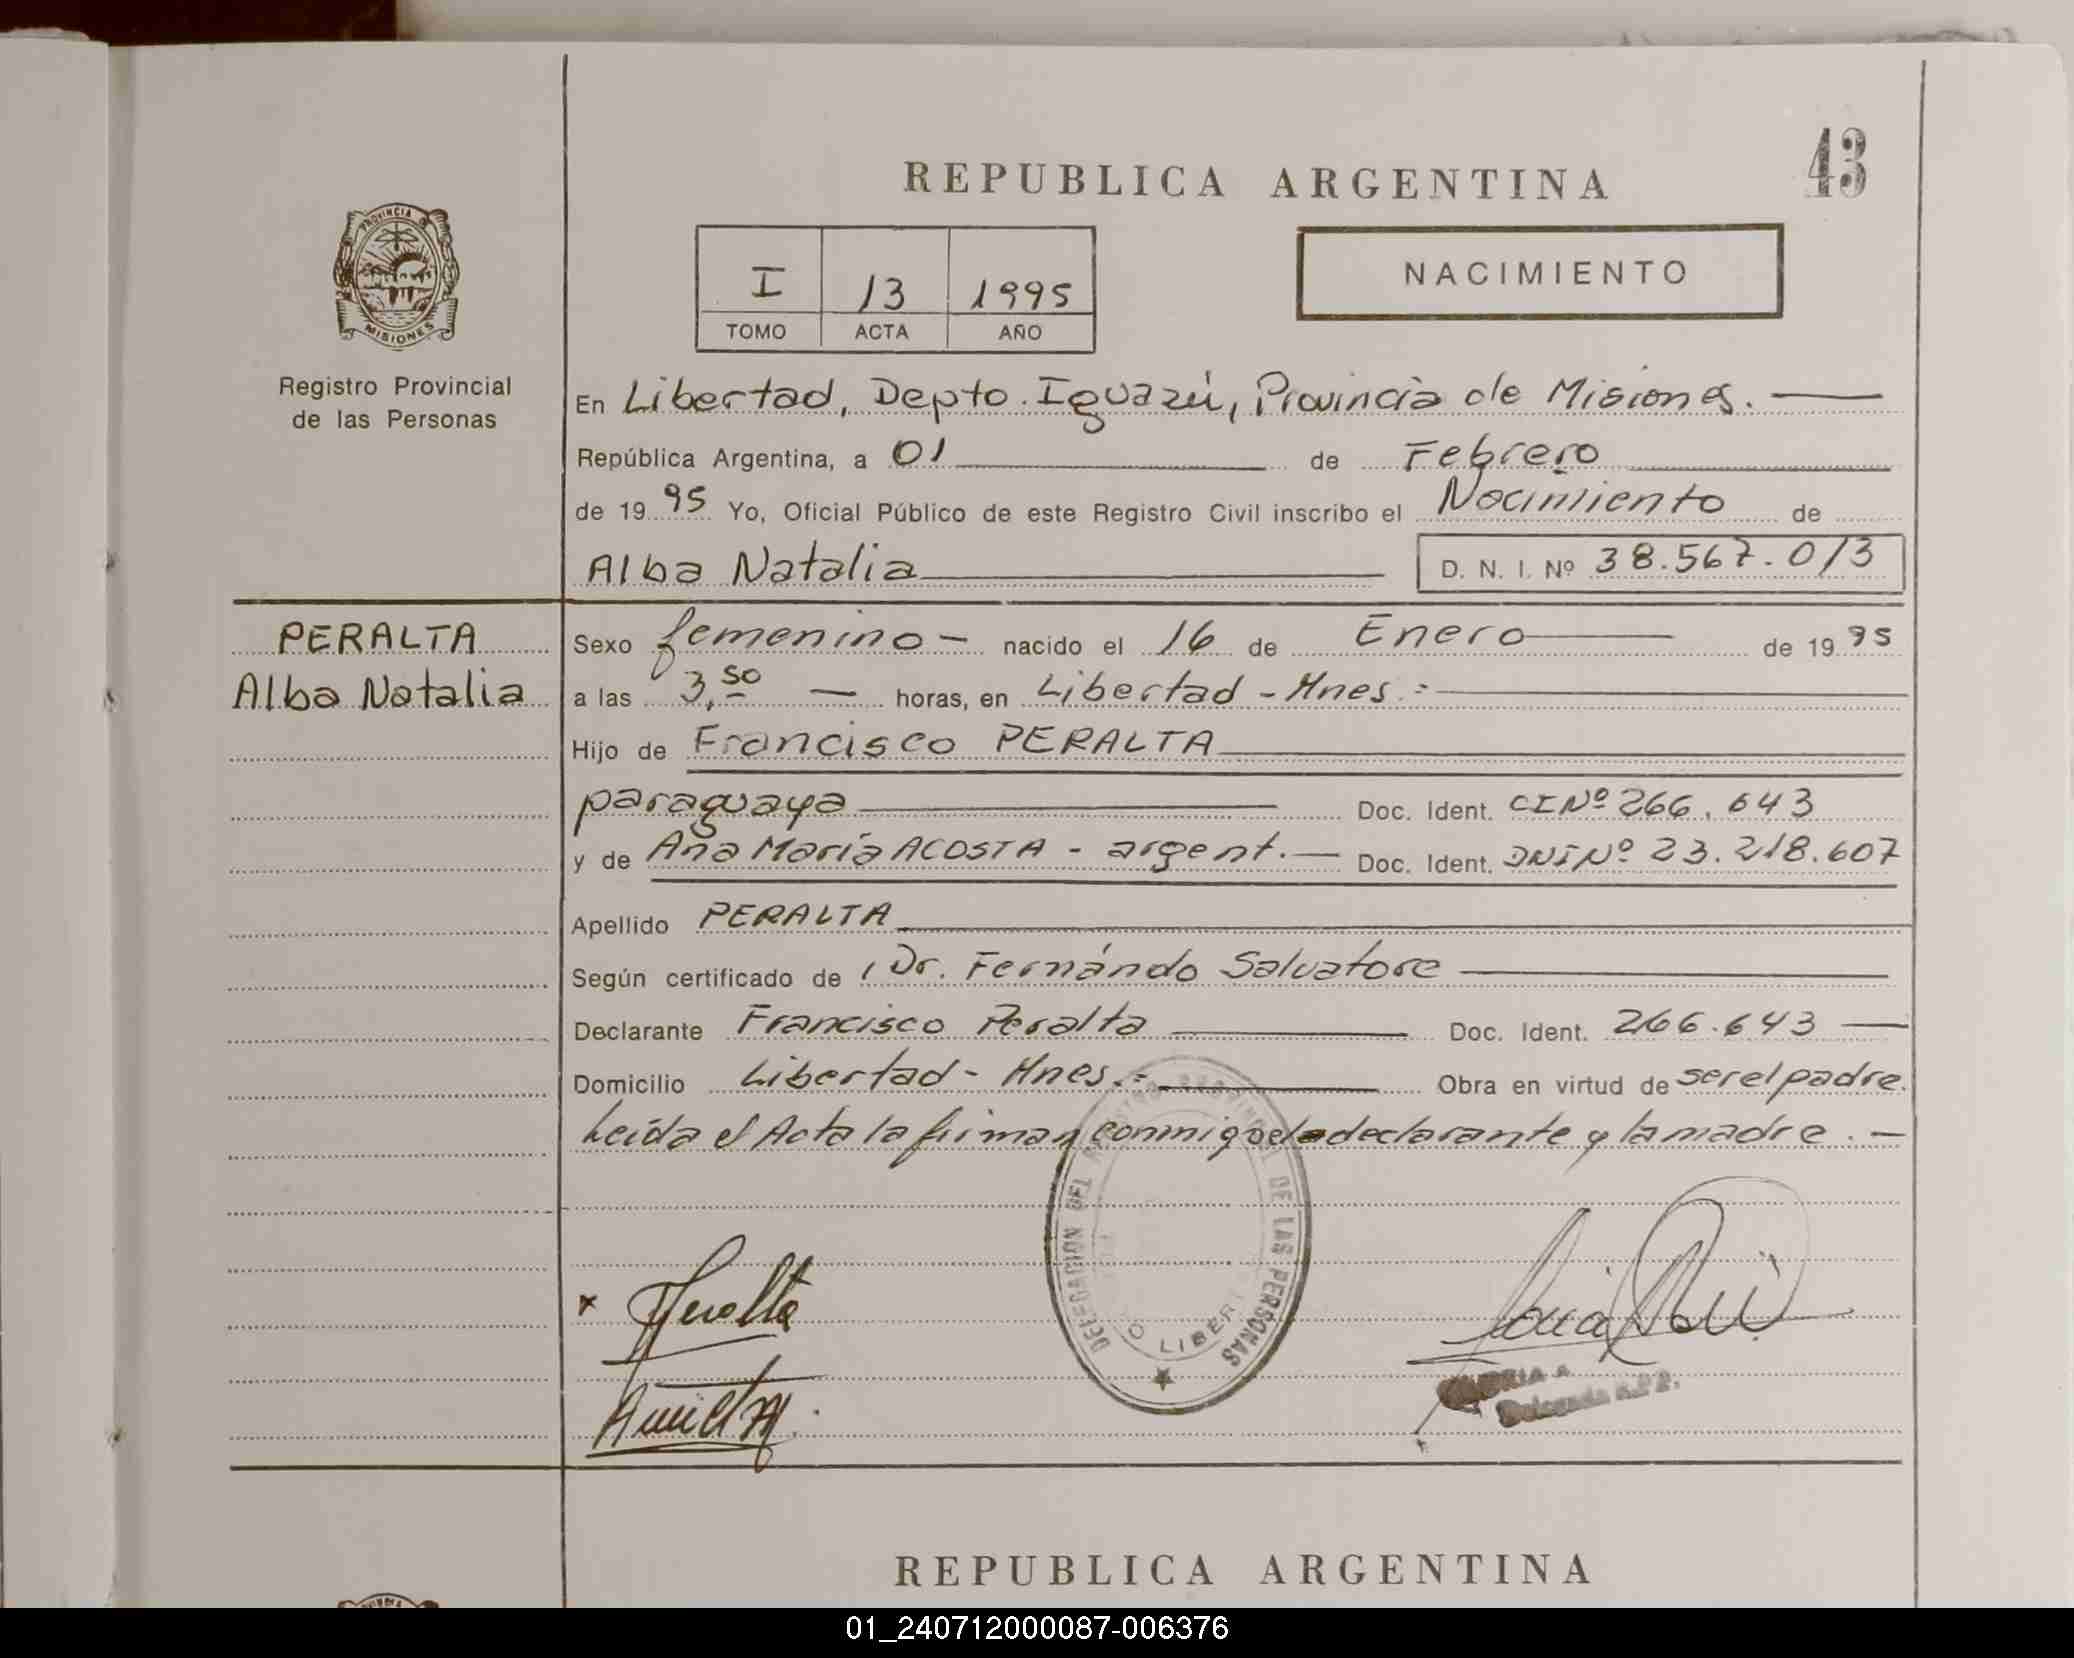 43
REPUBLICA ARGENTINA
PROVINCIA DE
MISIONES
Registro Provincial
de las Personas
I 13 1995
TOMO ACTA AÑO
NACIMIENTO
En Libertad, Depto. Iguazú, Provincia de Misiones.
República Argentina, a 01 de Febrero
de 1995 Yo, Oficial Público de este Registro Civil inscribo el Nacimiento de
Alba Natalia D. N. I. Nº 38.567.013
PERALTA
Alba Natalia
Sexo femenino - nacido el 16 de Enero de 1995
a las 3,50 horas, en Libertad - Mnes.=
Hijo de Francisco PERALTA
paraguaya Doc. Ident. CI Nº 266.643
y de Ana María ACOSTA - argent. Doc. Ident. DNI Nº 23.218.607
Apellido PERALTA
Según certificado de Dr. Fernándo Salvatore
Declarante Francisco Peralta Doc. Ident. 266.643
Domicilio Libertad - Mnes.= Obra en virtud de ser el padre.
Leída el Acta la firman conmigo el declarante y la madre. -
DELEGACION DEL REGISTRO PROVINCIAL DE LAS PERSONAS
LIBERTAD
x Peralta
Delegada R.P.P.
REPUBLICA ARGENTINA
01_240712000087-006376